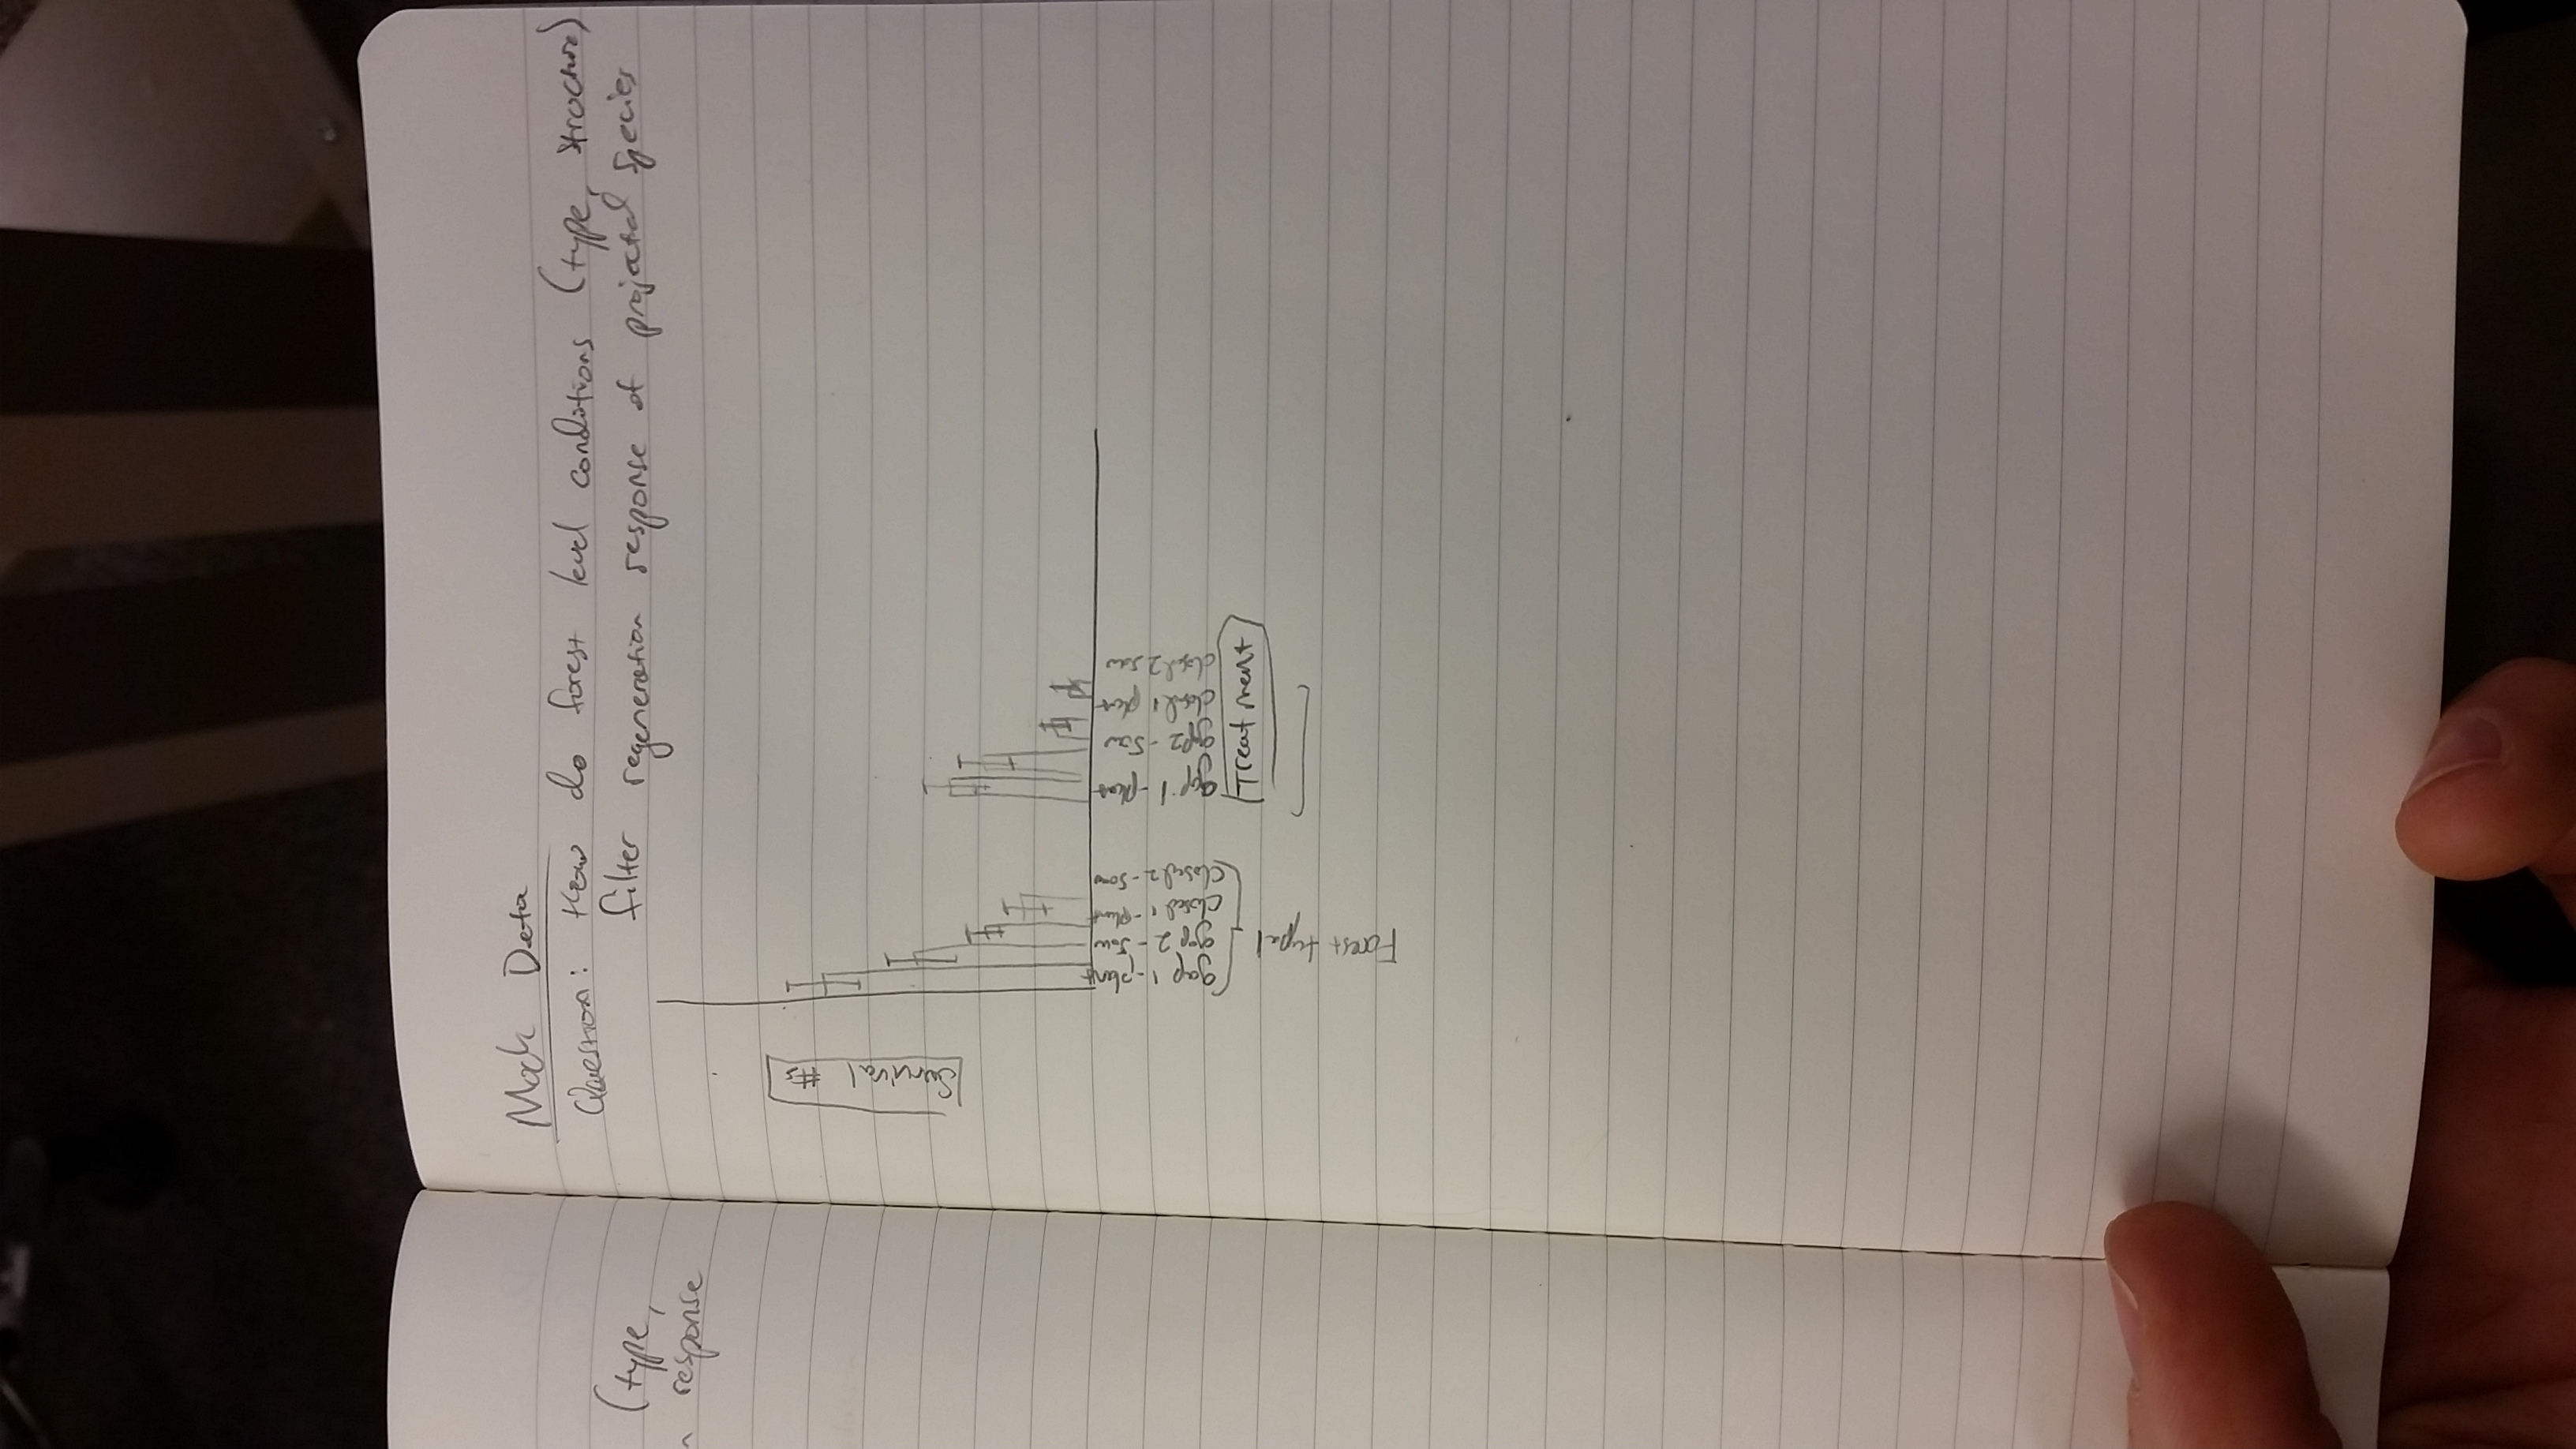 (type,
response
Mock Data
Question: How do forest level conditions (type, structure)
filter regeneration response of projected species
Survival #s
gap 1 - plant
gap 2 - sow
closed 1 - plant
closed 2 - sow
Forest type 1
gap 1 - plant
gap 2 - sow
closed 1 plant
closed 2 sow
Treatment